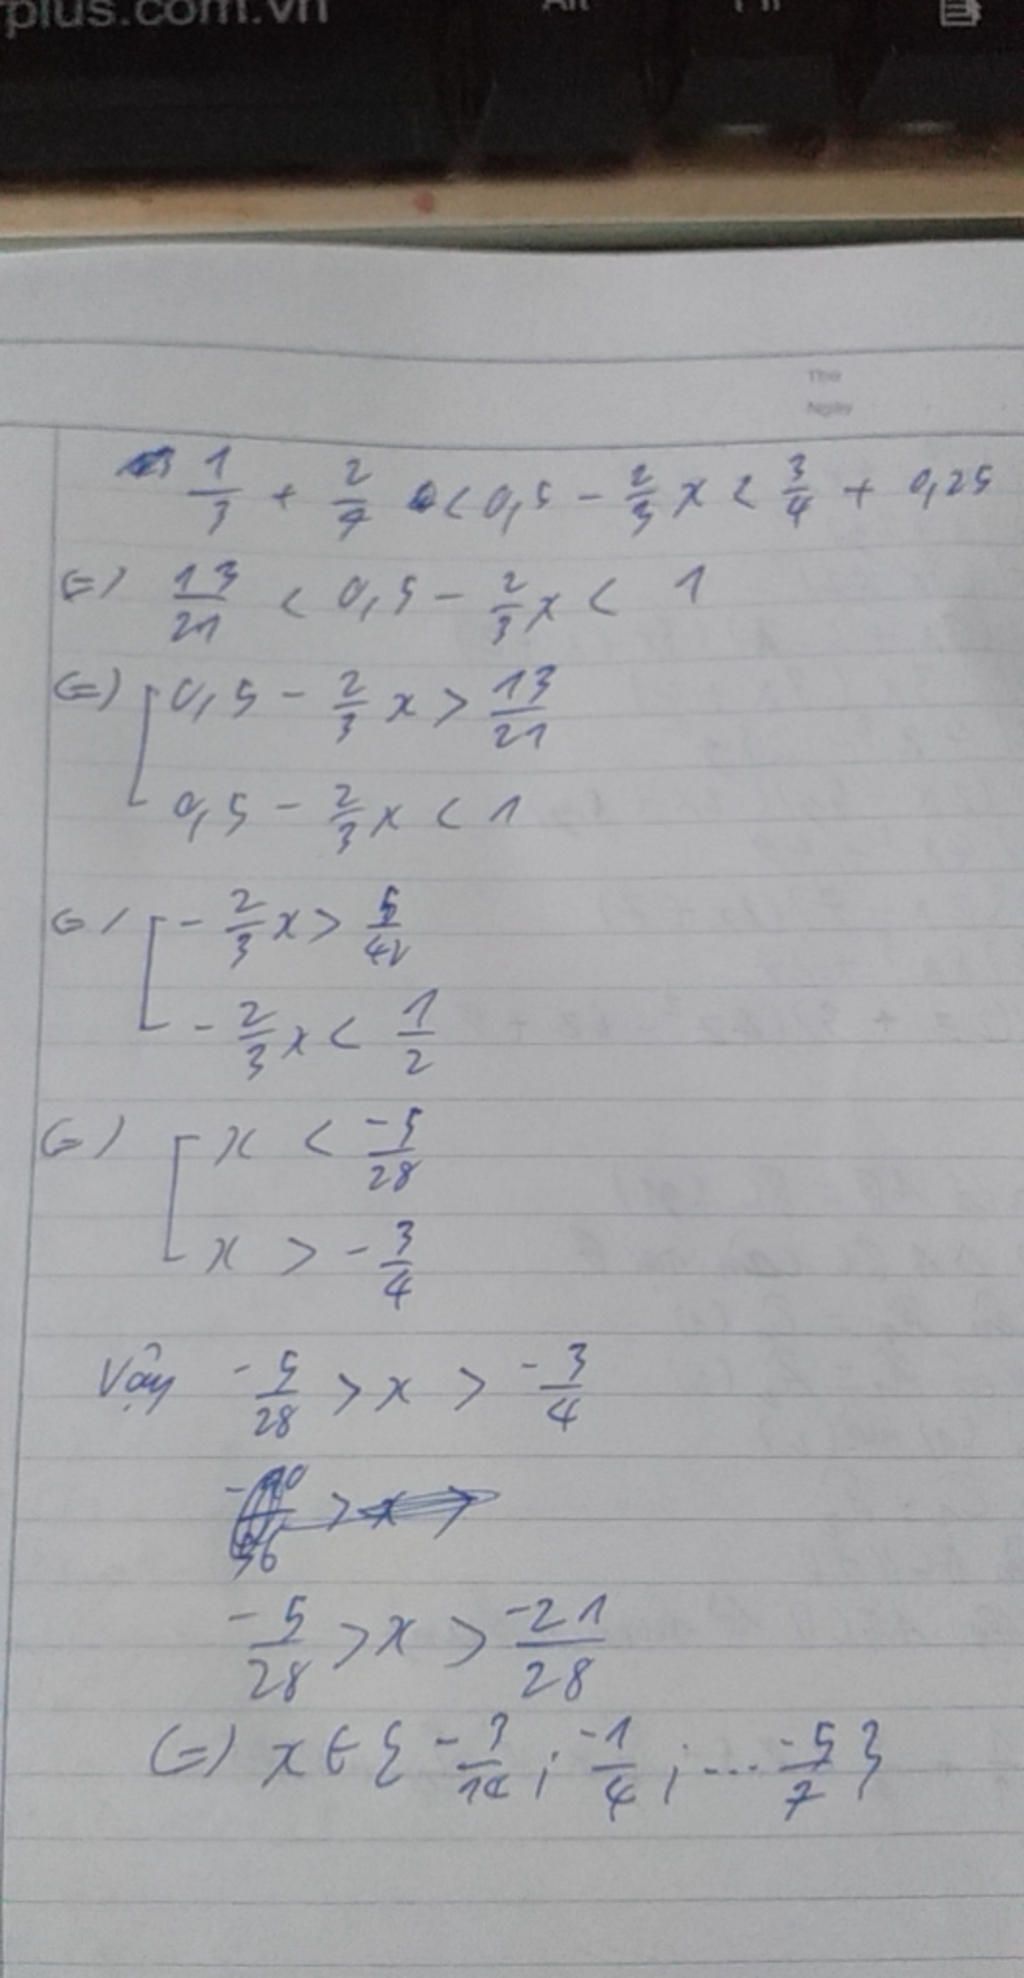 plus.com.vn
Thứ
Ngày
1/3 + 2/7 < 0,5 - 2/3 x < 3/4 + 0,25
(=) 13/21 < 0,5 - 2/3 x < 1
(=) [ 0,5 - 2/3 x > 13/21
0,5 - 2/3 x < 1
(=) [ - 2/3 x > 5/42
- 2/3 x < 1/2
(=) [ x < -5/28
x > - 3/4
Vậy -5/28 > x > -3/4
-5/28 > x > -21/28
(=) x ∈ { -3/14 ; -1/4 ; ... -5/7 }